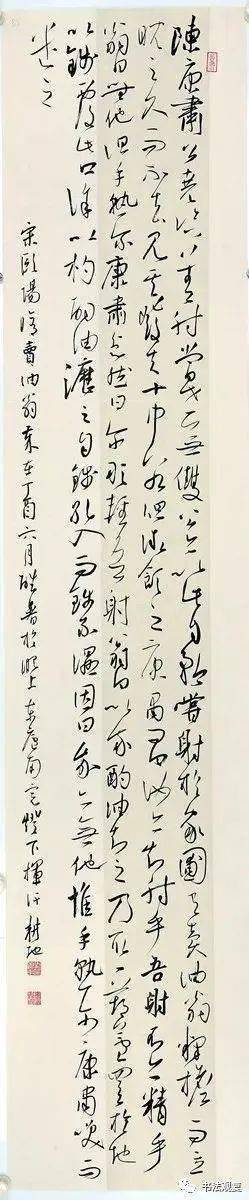 陳康肅公堯咨善射當世無雙公亦以此自矜嘗射於家圃有賣油翁釋擔而立
睨之久而不去見其發矢十中八九但微頷之康肅問曰汝亦知射乎吾射不亦精乎
翁曰無他但手熟爾康肅忿然曰爾安敢輕吾射翁曰以我酌油知之乃取一葫蘆置於地
以錢覆其口徐以杓酌油瀝之自錢孔入而錢不濕因曰我亦無他惟手熟爾康肅笑而
遣之
宋歐陽修賣油翁 歲在丁酉六月酷暑於 上東 南 燈下揮汗 耕地
书法观要